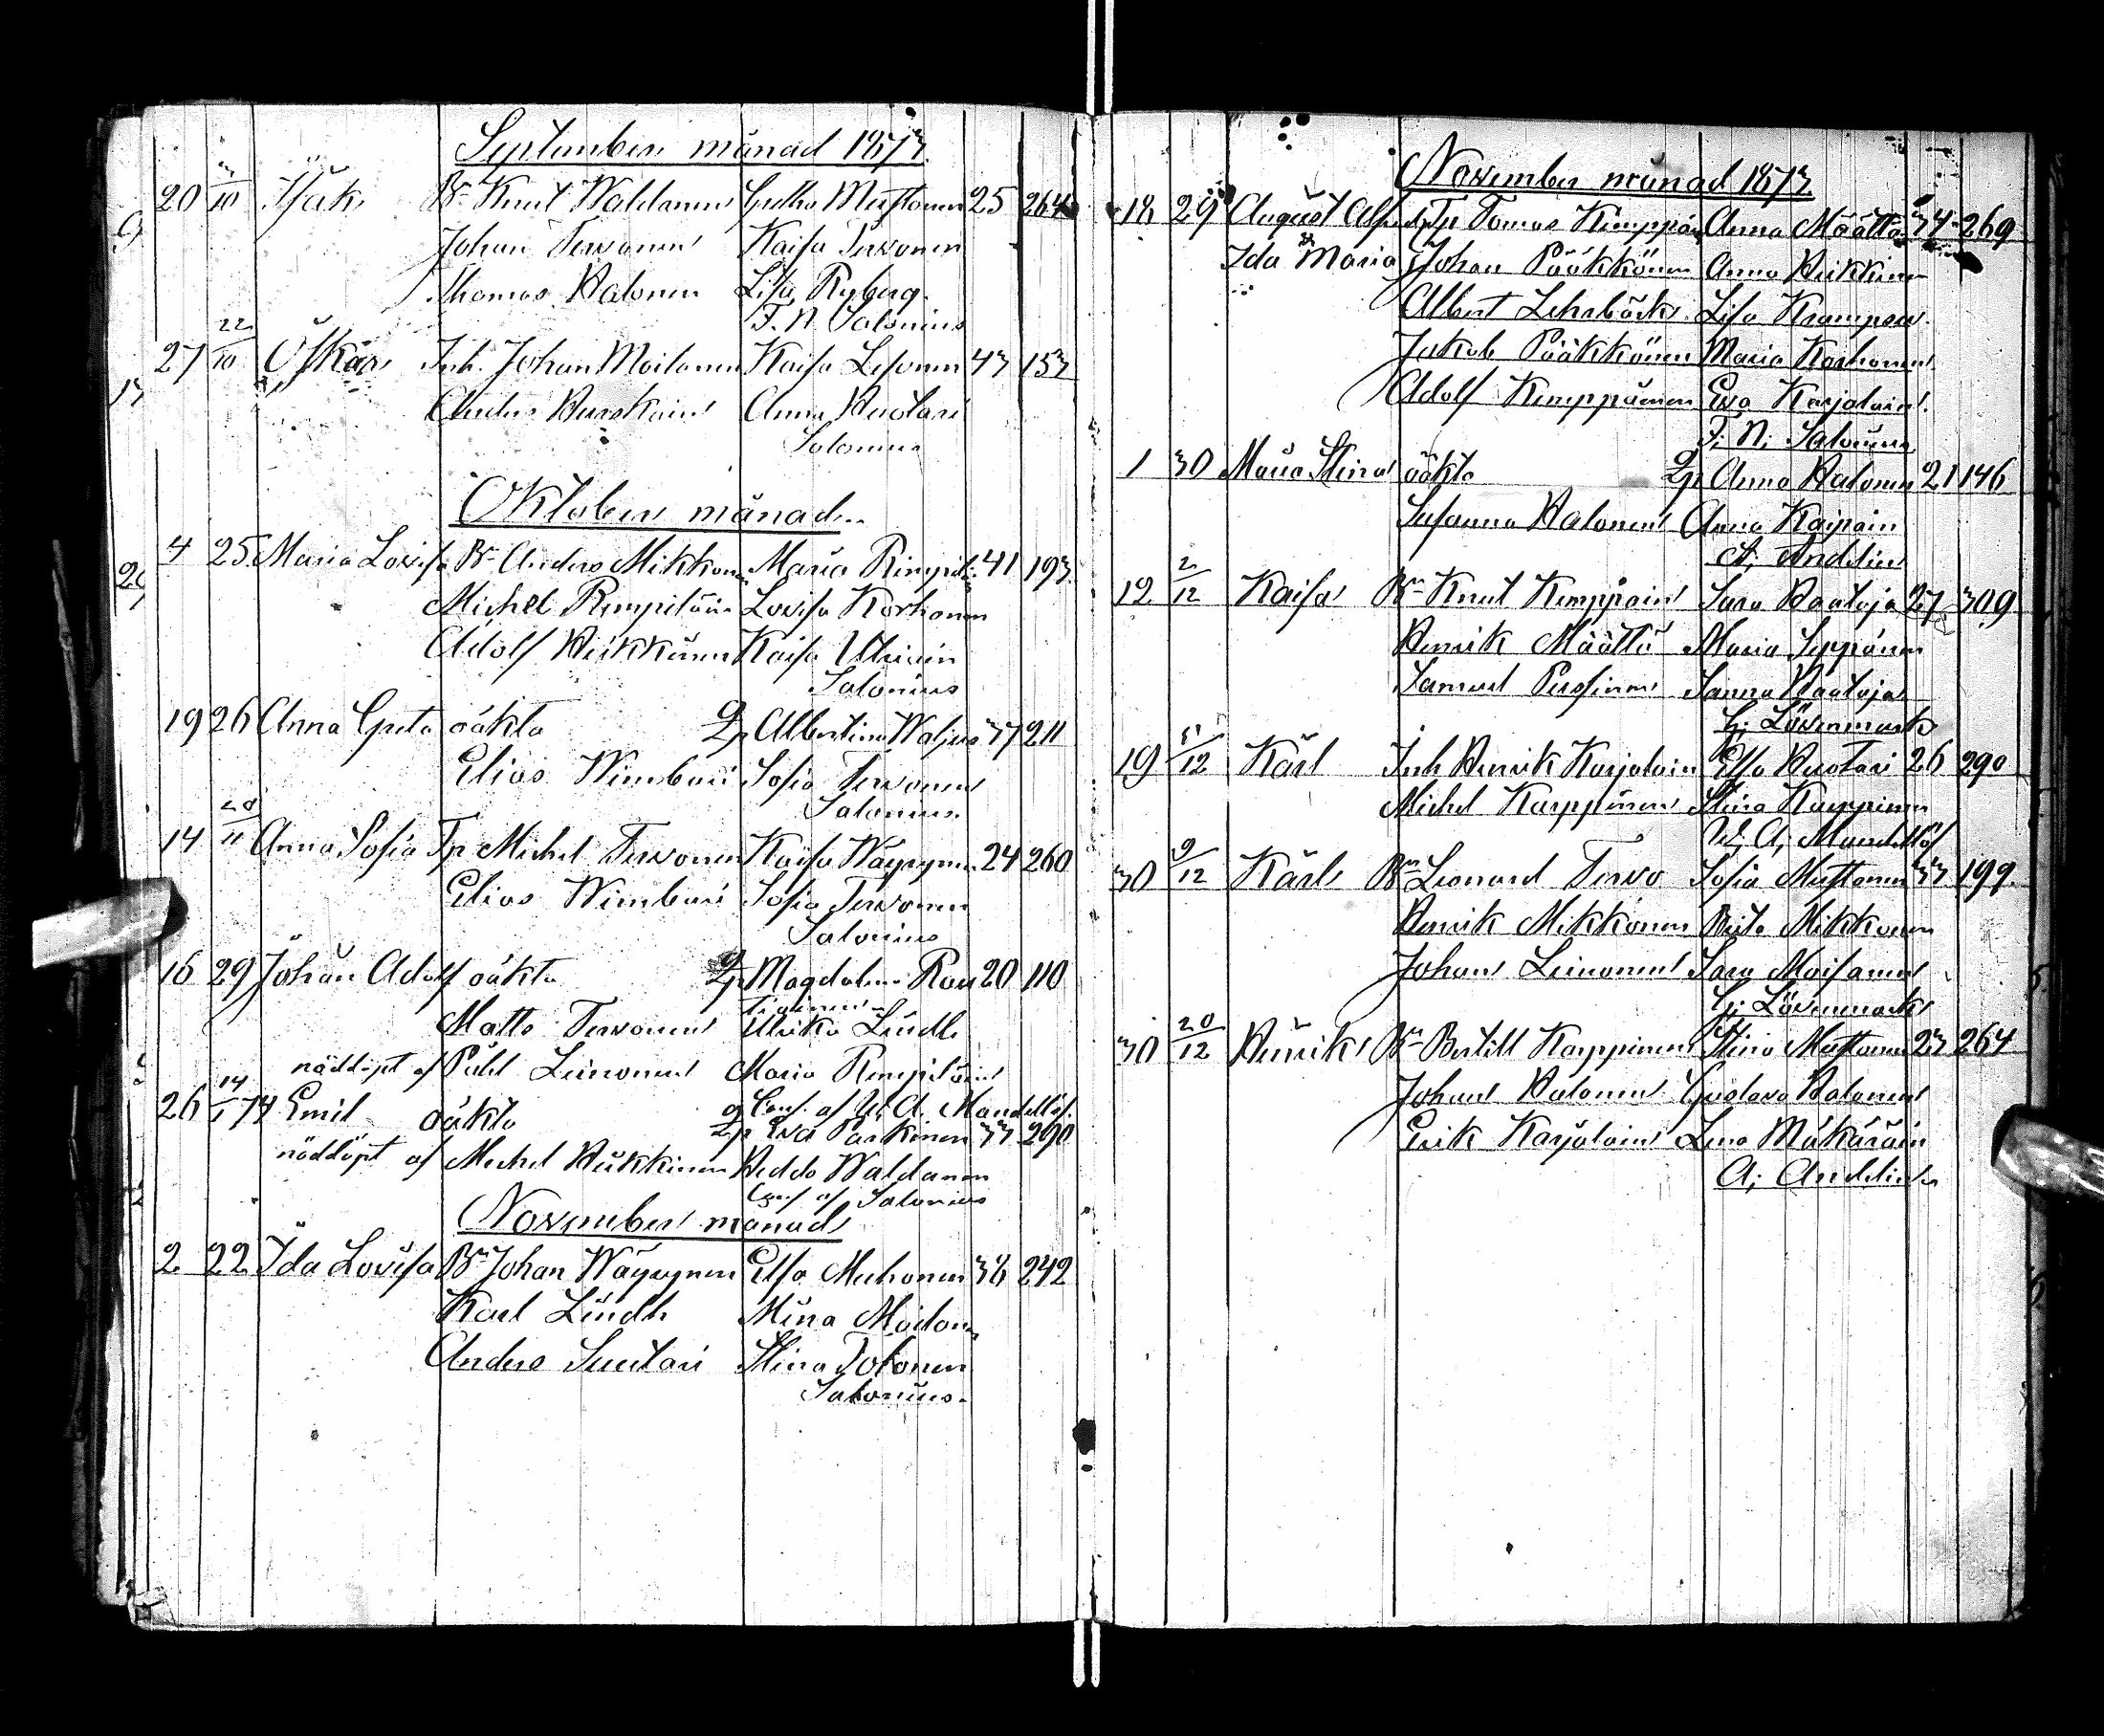 September månad 1873.
20 3/10 Isak Bn Knut Waldanen Hedda Mustonen 25 264
Johan Tervonen Kaisa Tervonen
Thomas Halonen Lisa Ryberg
F. N. Salonius
27 22/10 Oskar Inh. Johan Moilanen Kaisa Lesonen 43 153
Anders Hurskain Anna Huotari
Salonius
Oktober månad
4 25 Maria Lovisa Bn Anders Mikkonen Maria Rimpil 41 193
Michel Rimpiläin Lovisa Korhonen
Adolf Heikkinen Kaisa
Salonius
19 26 Anna Greta oäkta Qp Albertina Waljus 37 211
Elias Wimbari Sofia Tervonen
Salonius
14 20/11 Anna Sofia Tp Michel Tervonen Kaisa Wäyrynen 24 260
Elias Wimbari Sofia Tervonen
Salonius
16 29 Johan Adolf oäkta Qp Magdalena Rau 20 110
tiainen
Matts Tervonen Ulrika Lindh
nöddöpt af Påhl Leinonen Maria Rimpiläin
Conf. af W. A. Mandellöf
26 14/1 74 Emil oäkta Qp Eva Parkinen 33 290
nöddöpt af Michel Heikkinen Hedda Waldanen
Conf af Salonius
November månad
2 22 Ida Lovisa Bn Johan Wäyrynen Elsa Muhonen 38 242
Karl Lindh Mina Moilanen
Anders Suutari Stina Tolonen
Salonius.
November månad 1873.
18 29 August Alfred Tp Tomas Kemppain Anna Määttä 34 269
Ida Maria Johan Pääkkönen Anna Heikkinen
Albert Lehrbäck Lisa Krampsu
Jakob Pääkkönen Maria Korhonen
Adolf Kemppainen Eva Karjalain
F. N. Salonius
1 30 Maria Stina oäkta Qp Anna Halonen 21 146
Susanna Halonen Anna Kaipain
A. Andelin
12 2/12 Kaisa Bn Knut Kemppain Sara Raataja 27 309
Henrik Määttä Maria Seppänen
Samuel Pussinen Sanna Raataja
G. Lövenmark
19 5/12 Karl Inh Henrik Karjalain Elsa Huotari 26 290
Michel Karppinen Stina Karppinen
W. A. Mandellöf
30 9/12 Karl Bn Leonard Tervo Sofia Mustonen 33 199.
Henrik Mikkonen Brita Mikkonen
Johan Leinonen Sara Moisanen
G. Lövenmark
30 20/12 Henrik Bn Bertill Karppinen Stina Mustonen 23 264
Johan Halonen Gustava Halonen
Erik Karjalain Lena Mäkäräin
A. Andelin